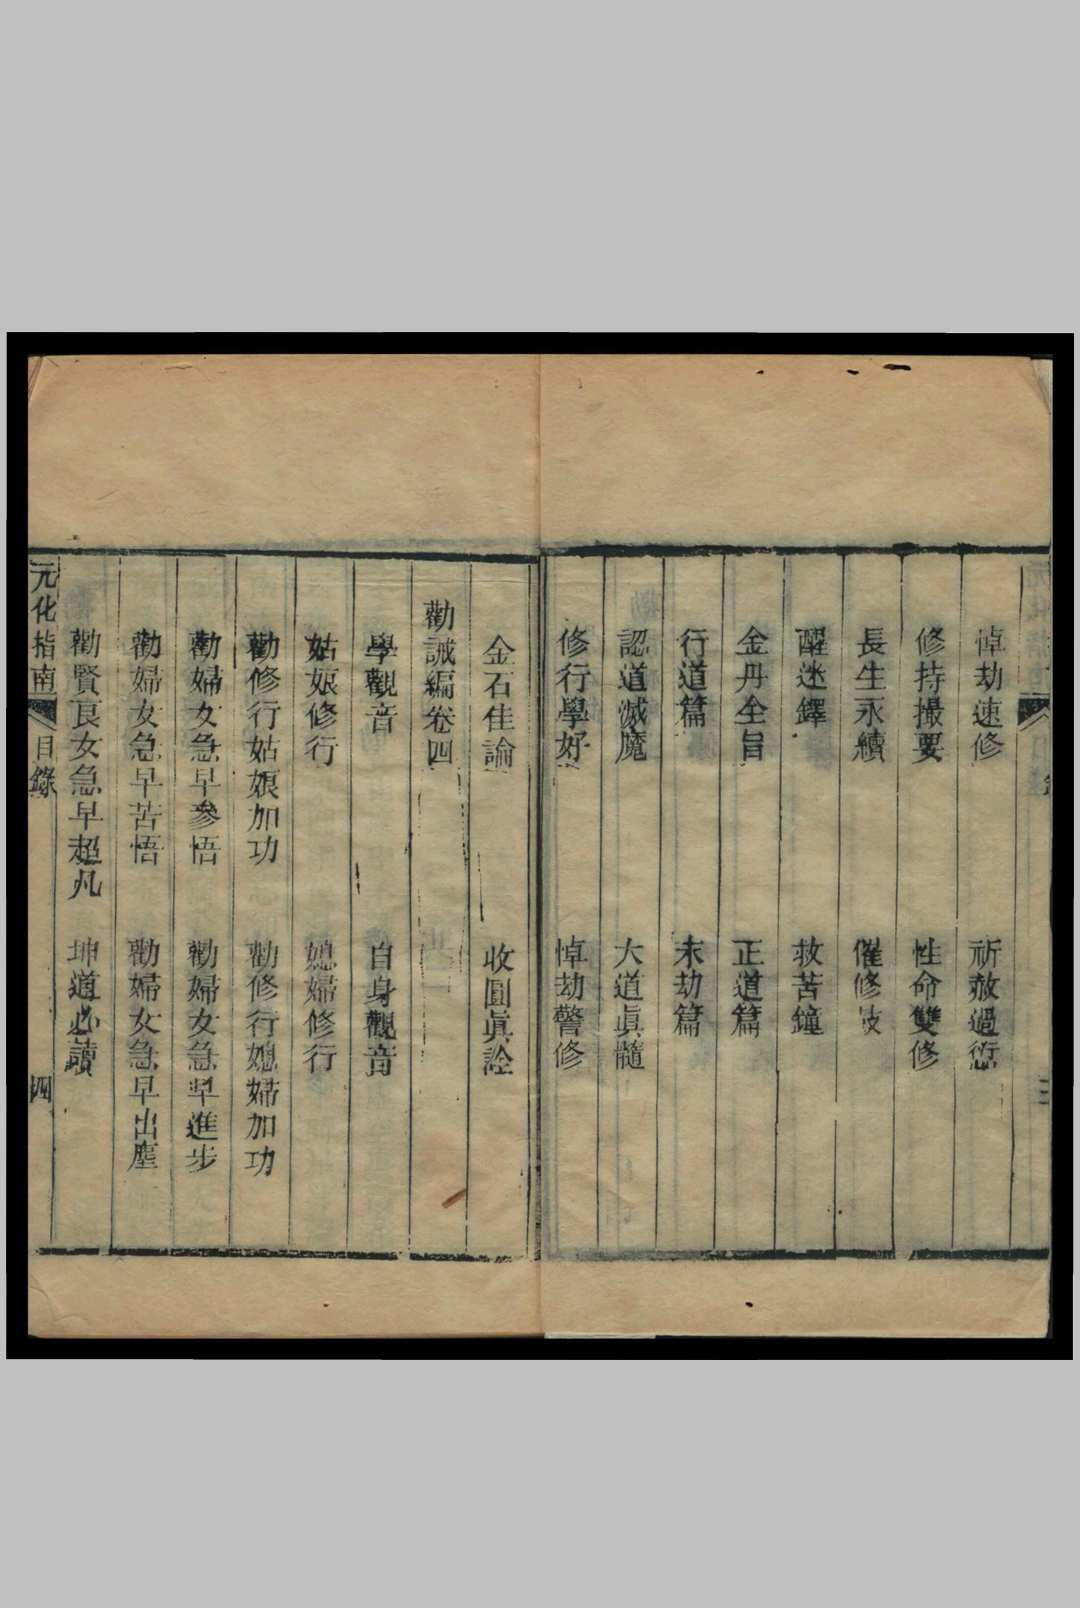 悼劫速修　祈赦過愆
修持撮要　性命雙修
長生永續　催修鼓
醒迷鐸　救苦鐘
金丹全旨　正道篇
行道篇　末劫篇
認道滅魔　大道眞髓
修行學好　悼劫警修
金石佳論　收圓眞詮
勸誡編卷四
學觀音　自身觀音
姑娘修行　媳婦修行
勸修行姑娘加功　勸修行媳婦加功
勸婦女急早參悟　勸婦女急早進步
勸婦女急早苦悟　勸婦女急早出塵
勸賢良女急早超凡　坤道必讀
元化指南　目錄　四